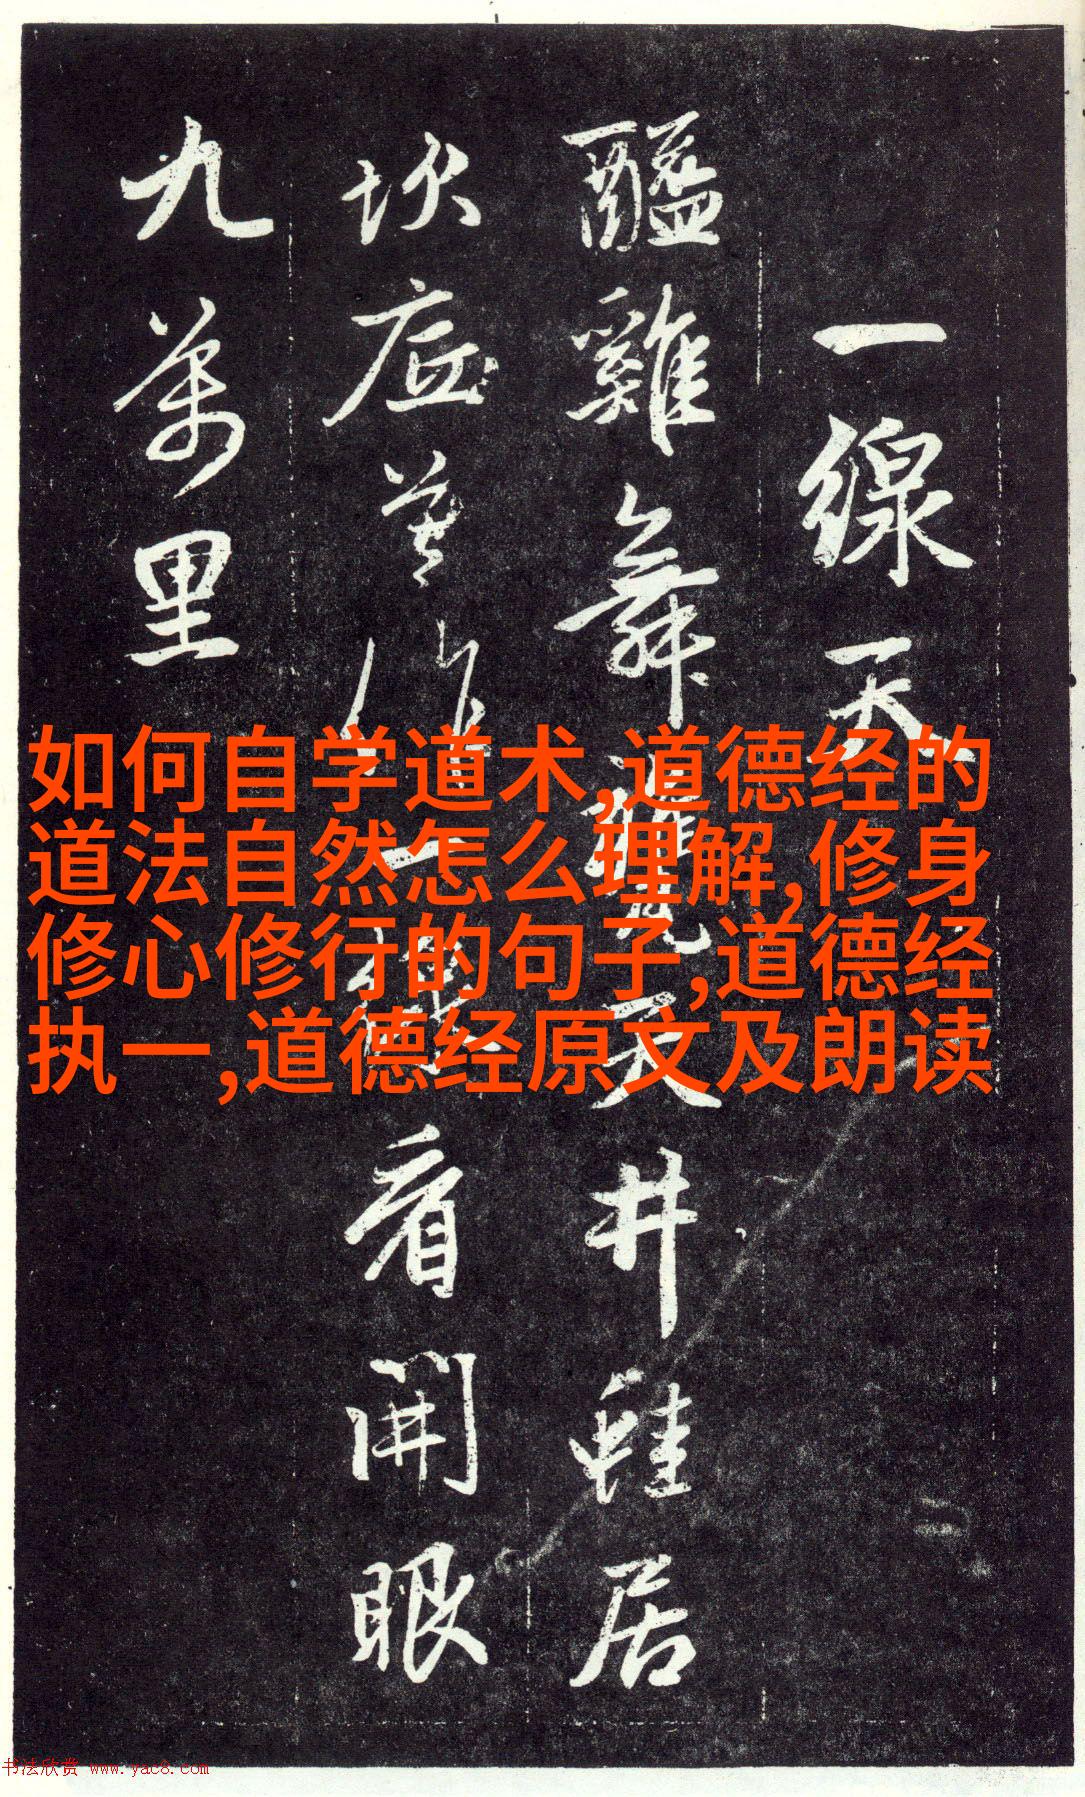 一線天
醯雞舞甕天井蛙居
坎底莫作一看開眼
九萬里
如何自学道术,道德经的
道法自然怎么理解,修身
修心修行的句子,道德经
执一,道德经原文及朗读
书法欣赏 www.yac8.com